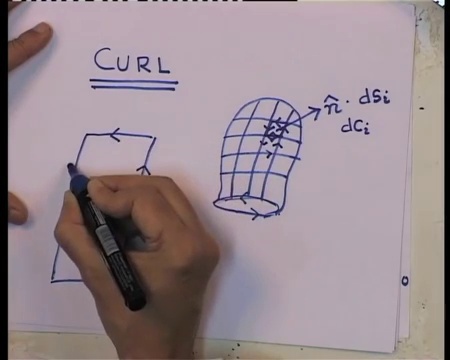 CURL
n̂ · dSᵢ
dCᵢ